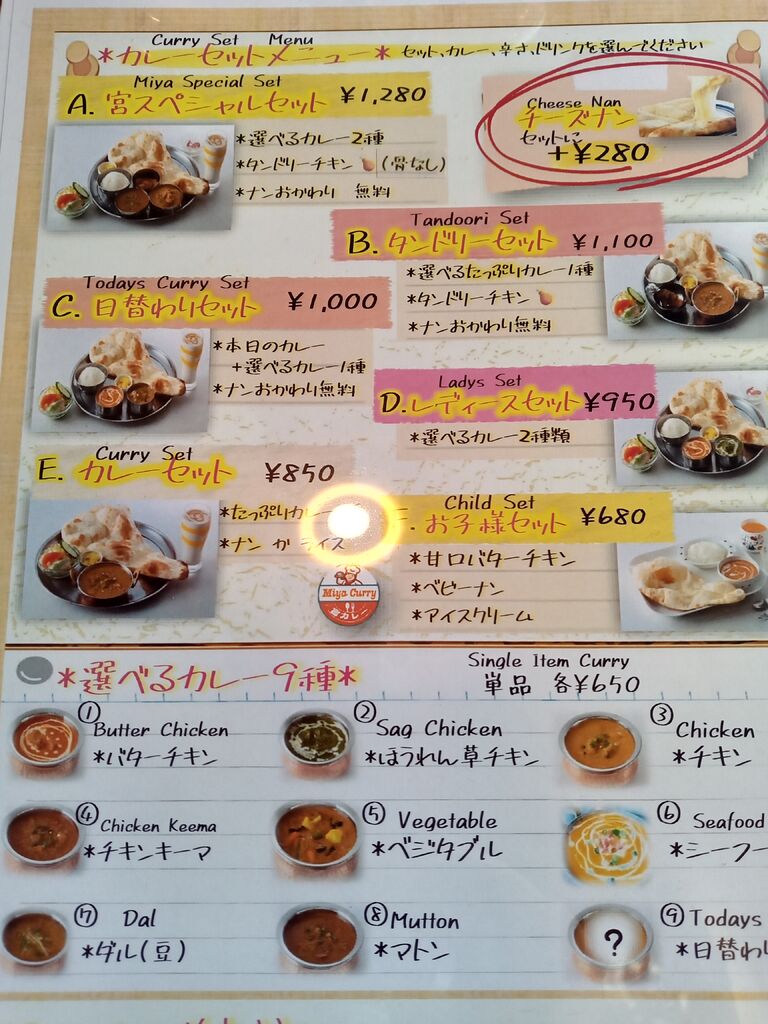 Curry Set Menu
*カレーセットメニュー* セット、カレー、辛さ、ドリンクを選んでください
Miya Special Set
A. 宮スペシャルセット ¥1,280
*選べるカレー2種
*タンドリーチキン (骨なし)
*ナンおかわり 無料
Cheese Nan
チーズナン
セットに
+¥280
Tandoori Set
B. タンドリーセット ¥1,100
*選べるたっぷりカレー1種
*タンドリーチキン
*ナンおかわり無料
Todays Curry Set
C. 日替わりセット ¥1,000
*本日のカレー
+選べるカレー1種
*ナンおかわり無料
Ladys Set
D. レディースセット ¥950
*選べるカレー2種類
Curry Set
E. カレーセット ¥850
*たっぷりカレー
*ナン か ライス
Child Set
お子様セット ¥680
*甘口バターチキン
*ベビーナン
*アイスクリーム
Miya Curry
宮カレー
*選べるカレー9種*
Single Item Curry
単品 各¥650
① Butter Chicken
*バターチキン
② Sag Chicken
*ほうれん草チキン
③ Chicken
*チキン
④ Chicken Keema
*チキンキーマ
⑤ Vegetable
*ベジタブル
⑥ Seafood
*シーフー
⑦ Dal
*ダル(豆)
⑧ Mutton
*マトン
?
⑨ Todays
*日替わり